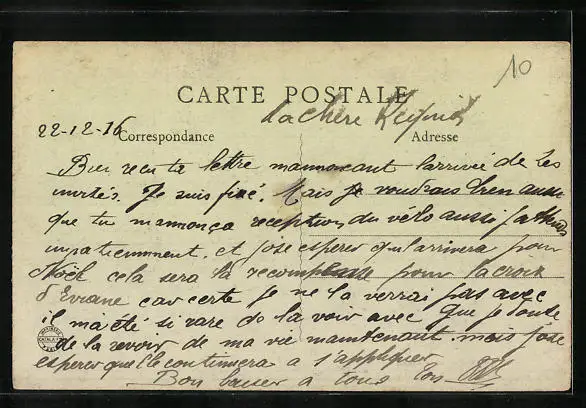 10
CARTE POSTALE
La chère
22-12-16
Correspondance
Adresse
Bien recu ta lettre mannoncant l'arrivée de tes
invités. Je suis fixé. Mais je voudrais bien aussi
que tu mannonça reception du vélo aussi j'attends
impatiemment. et j'ose esperer qu'il arrivera pour
Noël cela sera la recompense pour la croix
d'Eviane car certe je ne la verrai pas avec
il m'a été si rare de la voir avec que je doute
de la revoir de ma vie maintenant. mais j'ose
esperer quelle continuera a s'appliquer
Bon baiser a tous ton